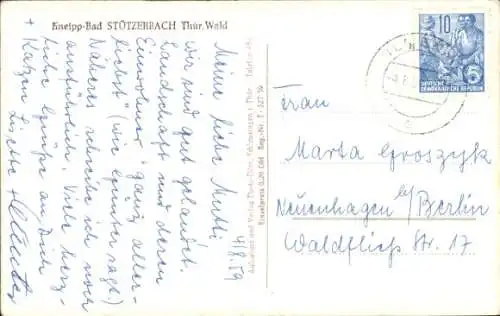 Kneipp-Bad STÜTZERBACH Thür. Wald
4/8.59
Meine liebe Mutti!
Wir sind gut gelandet.
Landschaft und deren
Einwohner "ganz aller-
liebst" (wie Gunter sagt.)
Näheres schreibe ich noch
ausführlich. Viele herz-
liche Grüße an Dich
+ Katzen Lisette +
10
DEUTSCHE
DEMOKRATISCHE REPUBLIK
Frau
Marta Groszyk
Neuenhagen b/Berlin
Waldfließ Str. 17